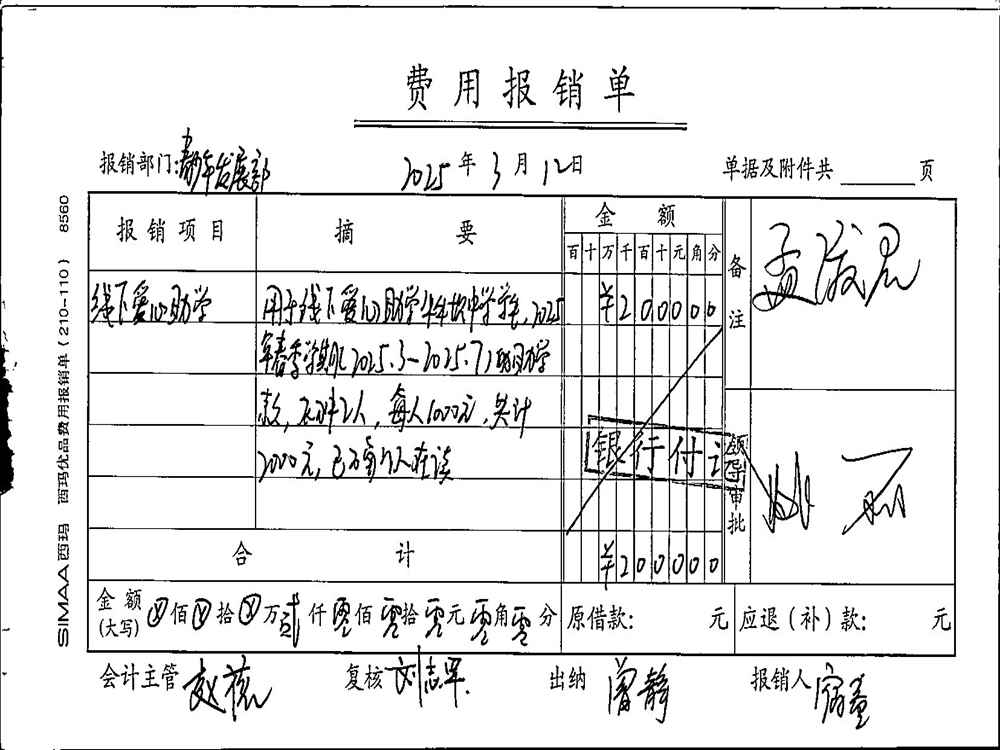 费用报销单
报销部门:青年发展部 2025年3月12日 单据及附件共 页
报销项目 摘要 金额 备注
百十万千百十元角分
线下爱心助学 用于线下爱心助学 中学学生,2025 ¥200000
年春季学期(2025.3-2025.7)的助学
款, 2人,每人1000元,共计
2000元,已 人在读
银行付讫
领导审批
合计 ¥200000
金额(大写) 佰 拾 万贰仟零佰零拾零元零角零分 原借款: 元 应退(补)款: 元
会计主管 赵 复核 刘志军 出纳 曾静 报销人
SIMAA西玛 西玛优品费用报销单(210-110) 8560